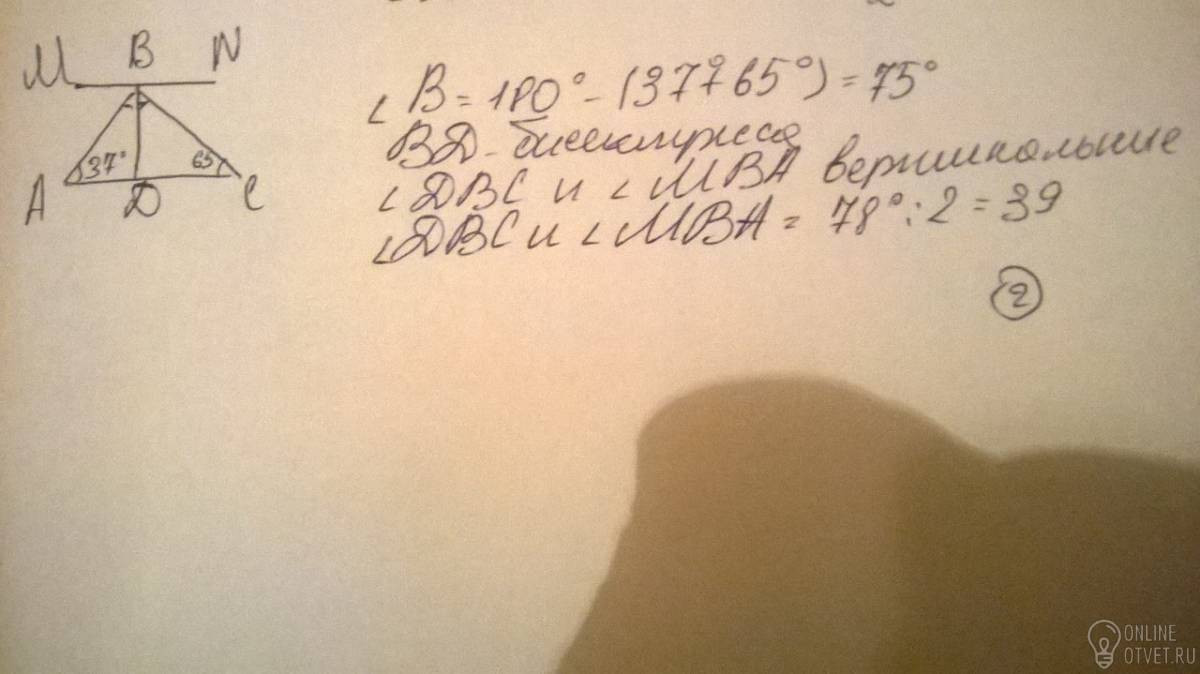 M B N
37° 65
A D C
∠B = 180° - (37°+65°) = 75°
BD - биссектриса
∠DBC и ∠MBA вертикальные
∠DBC и ∠MBA = 78° : 2 = 39
2
ONLINE
OTVET.RU